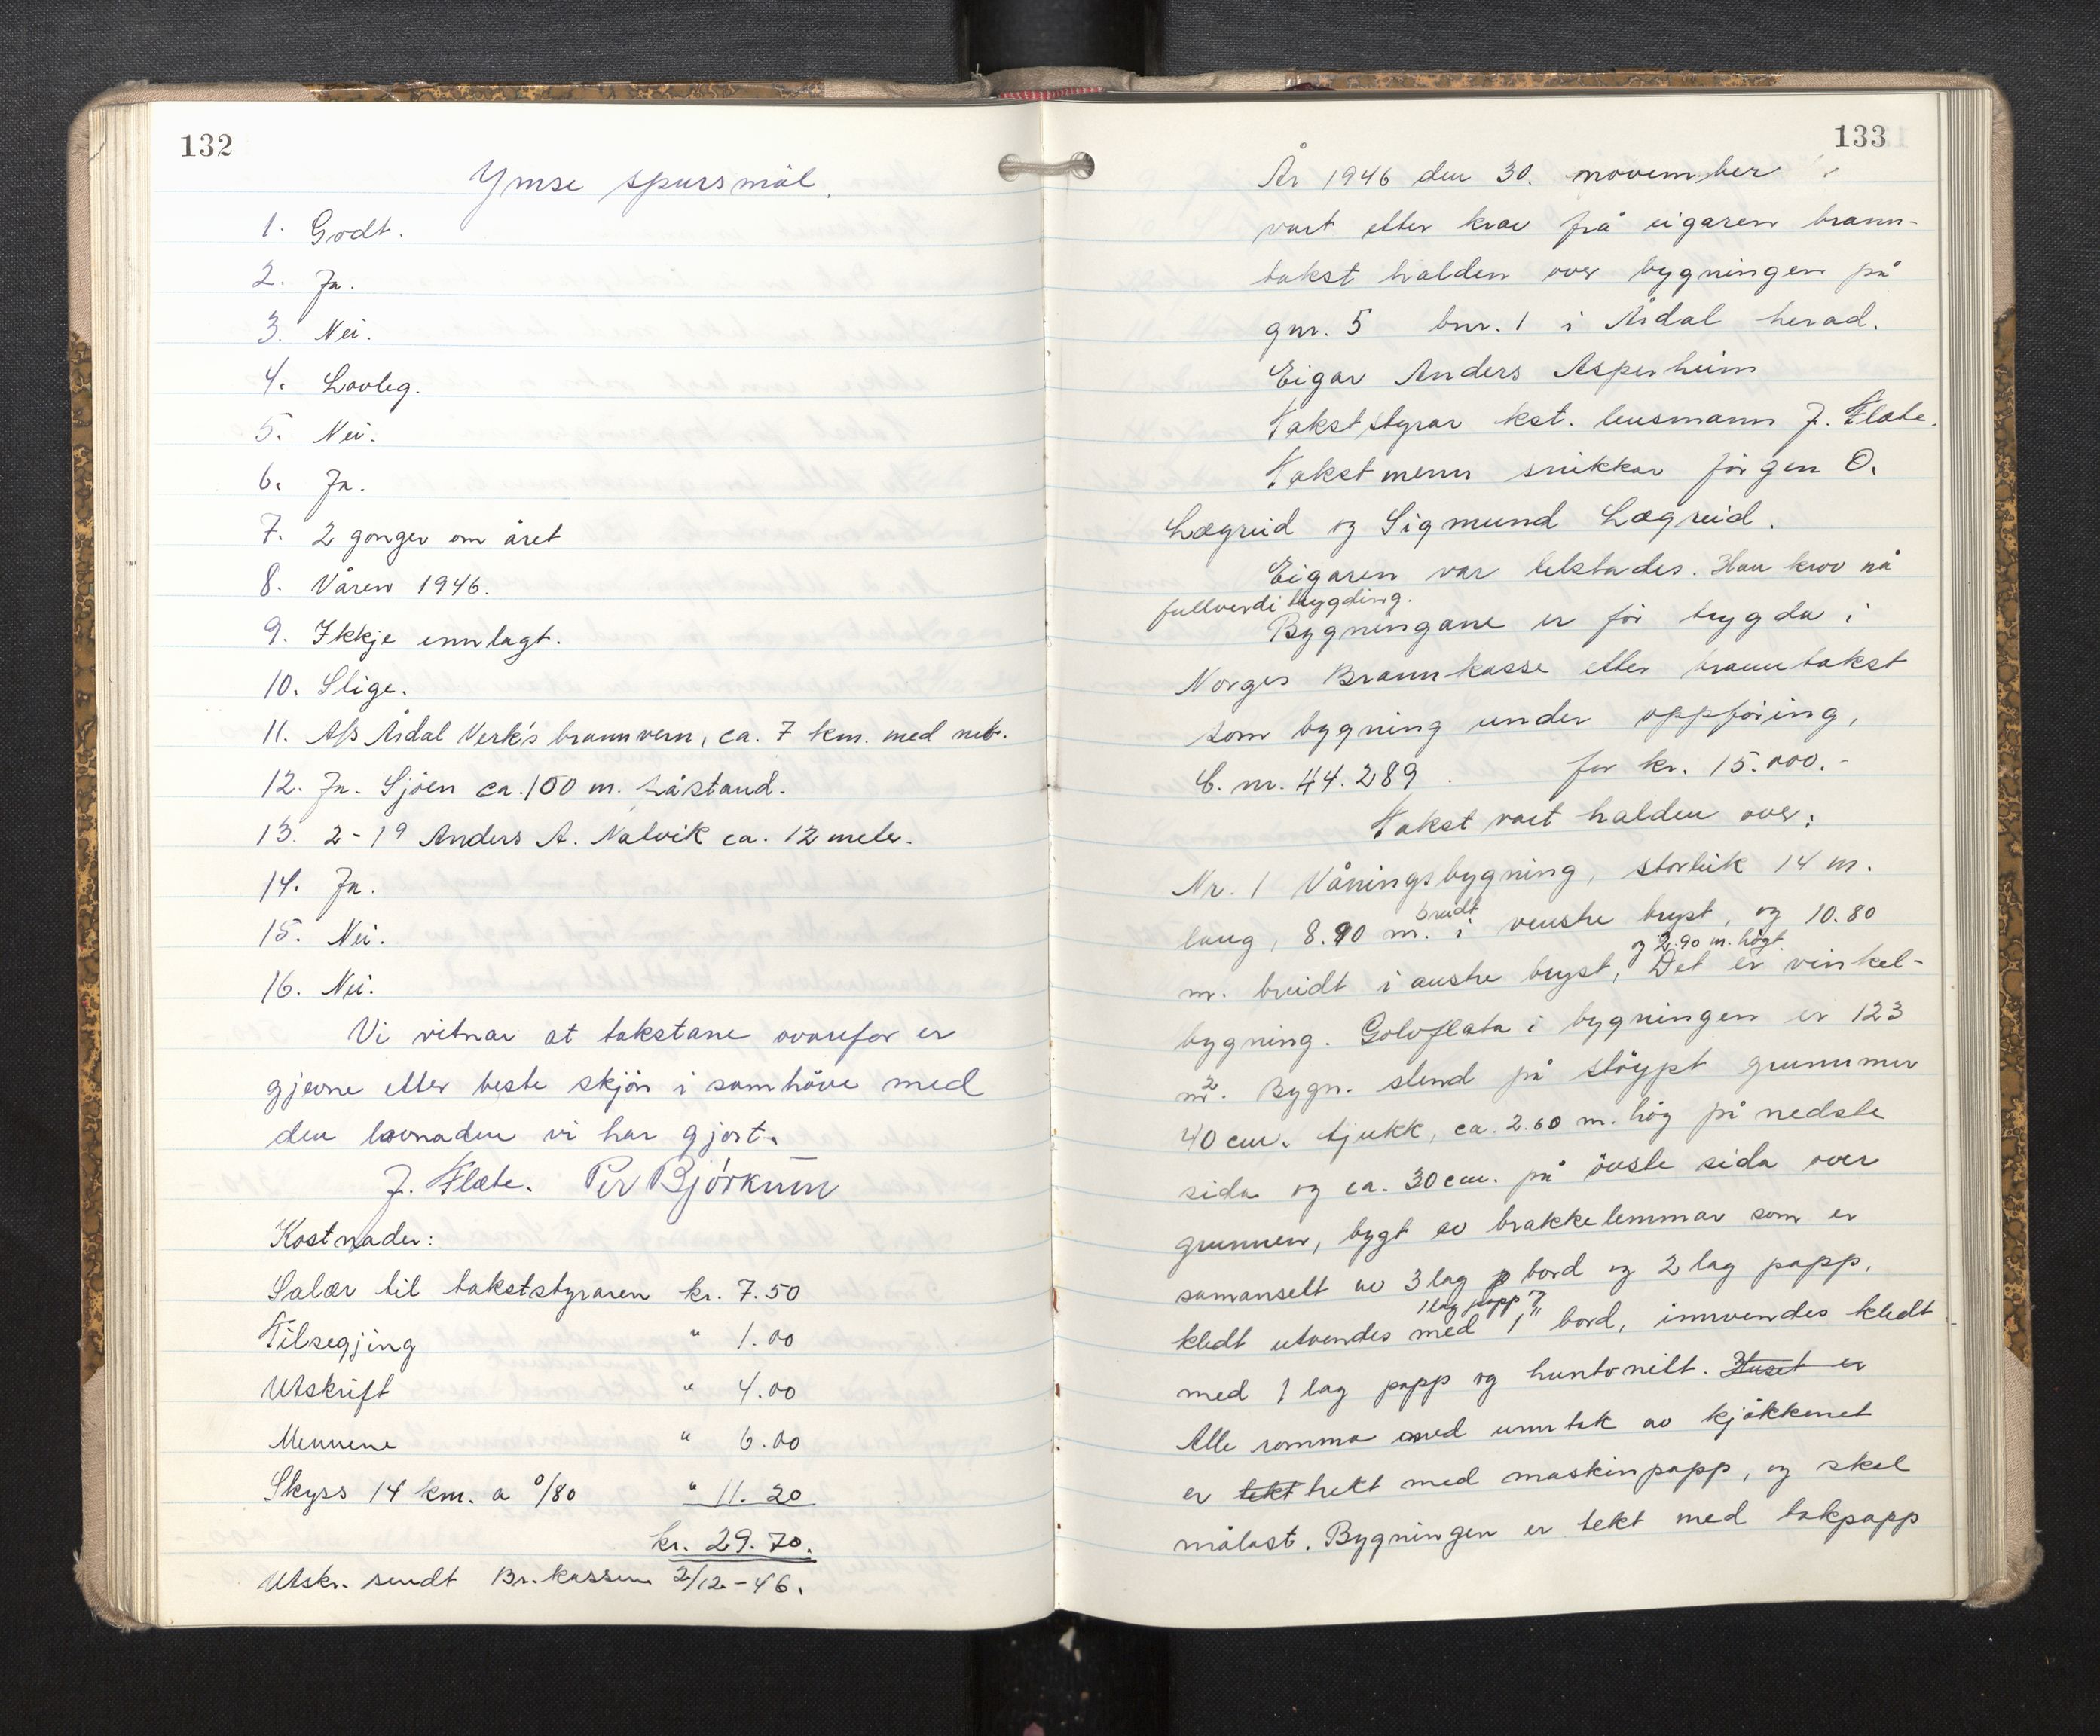 132
Ymse spursmål.
1. Godt.
2. Ja.
3. Nei.
4. Lovleg.
5. Nei.
6. Ja.
7. 2 gonger om året
8. Våren 1946.
9. Ikkje innlagt.
10. Stige.
11. A/s Årdal Verk's brannvern, ca. 7 km. med
12. Ja. Sjöen ca. 100 m. fråstand.
13. 2-19 Anders A. Natvik ca. 12 meter.
14. Ja.
15. Nei.
16. Nei.
Vi vitnar at takstane ovanfor er
gjevne etter beste skjön i samhöve med
den lovnaden vi har gjort.
J. Flæte. Per Björkum
Kostnader:
Salær til takststyraren kr. 7.50
Tilsegjing " 1.00
Utskrift " 4.00
Mennene " 6.00
Skyss 14 km. a 0/80 " 11.20
kr. 29.70.
Utskr. sendt Br.kassen 2/12-46.
133
År 1946 den 30. november
vart etter krav frå eigaren brann-
takst halden over bygningen på
gnr. 5 bnr. 1 i Årdal herad.
Eigar Anders Asperheim
Takststyrar kst. lensmann J. Flæte.
Takstmenn snikkar Jörgen O.
Lægreid og Sigmund Lægreid.
Eigaren var tilstades. Han krov nå
fullverdi trygding.
Bygningane er för trygda i
Norges Brannkasse etter branntakst
som bygning under oppföring,
C. nr. 44.289 . for kr. 15.000.-
Takst vart halden over:
Nr. 1 Våningsbygning, storleik 14 m.
breidt
lang, 8.90 m. i venstre bryst, og 10.80
og 2.90 m. högt.
m. breidt i austre bryst, Det er vinkel-
bygning. Golvflata i bygningen er 123
m². Bygn. stend på stöypt grunnmur
40 cm. tjukk, ca. 2.60 m. hög på nedste
sida og ca. 30 cm. på övste sida over
grunnen, bygt av brakkelemmar som er
samansett av 3 lag bord og 2 lag papp,
1 lag papp og
kledt utvendes med 1" bord, innvendes kledt
med 1 lag papp og huntonitt. Huset er
Alle romma med unntak av kjökkenet
er tekt trekt med maskinpapp, og skal
målast. Bygningen er tekt med takpapp